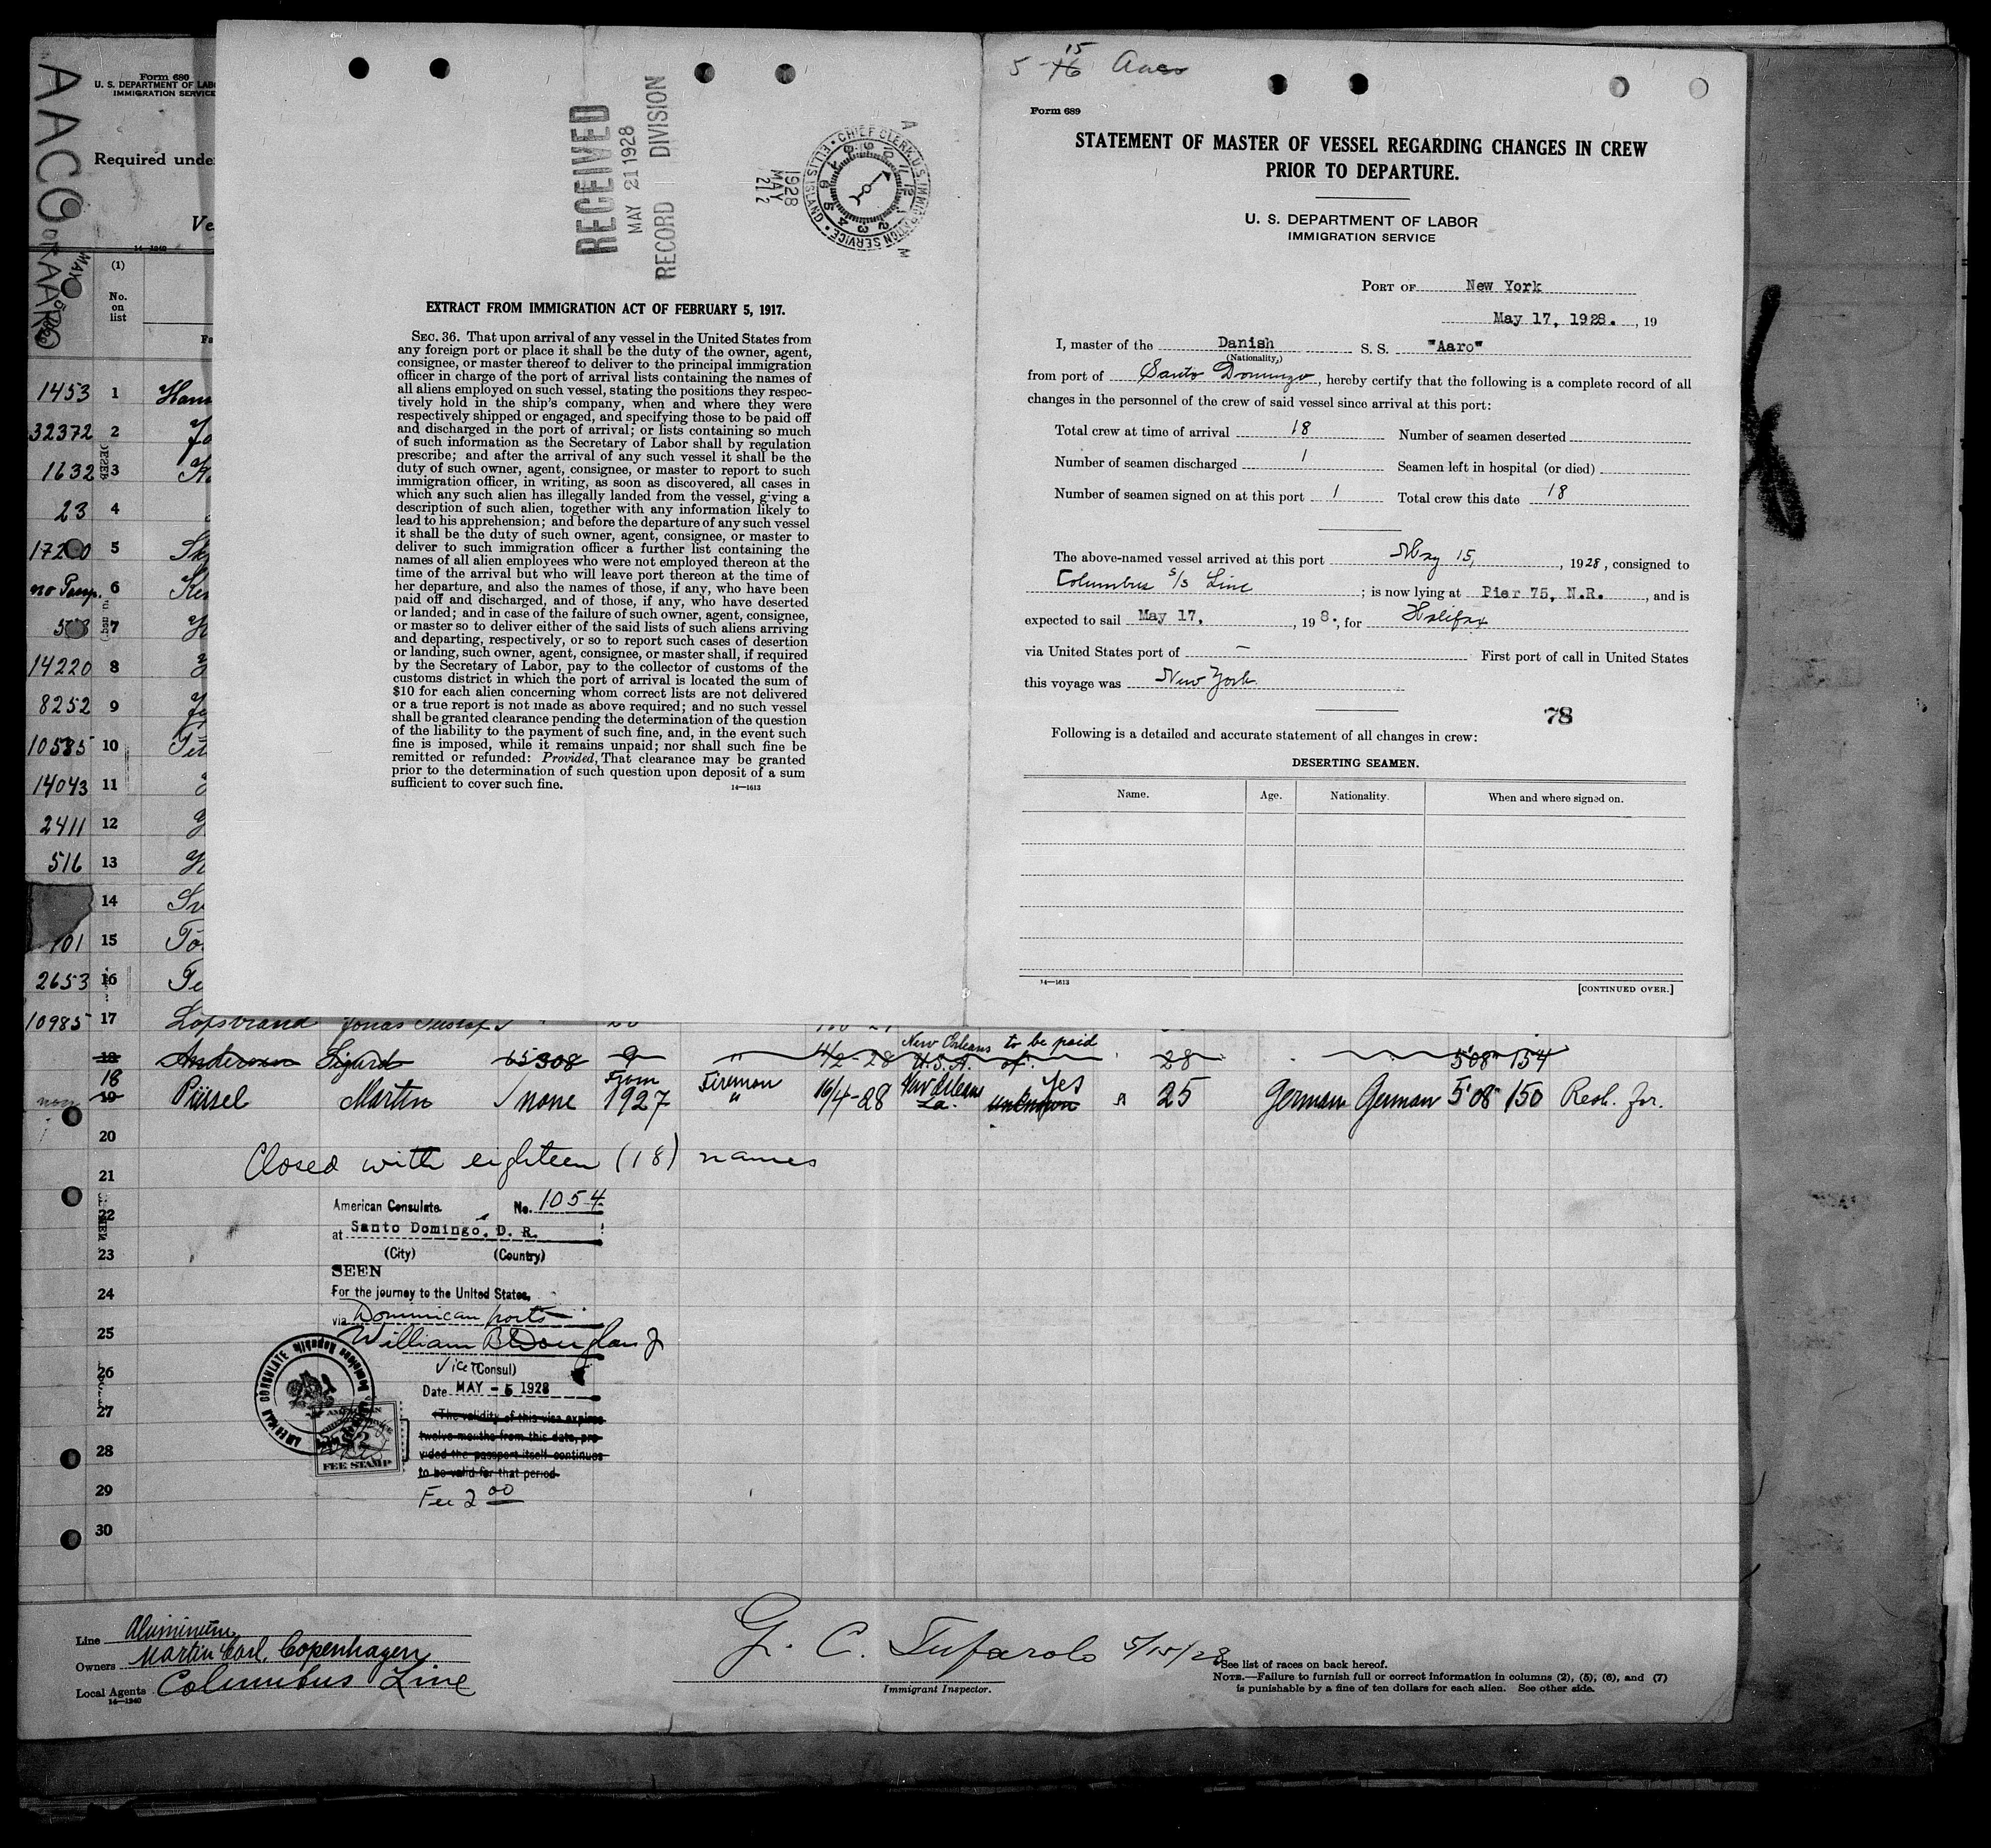 AACO
or AARO
MAY 15 1928
Form 680
U. S. DEPARTMENT OF LAB
IMMIGRATION SERVICE
Required unde
Ve
14—1240
(1)
No.
on
list
Fa
1453 1 Hans
32372 2 Jo
1632 3
23 4
5 Sk
no Passp. 6 Kri
7
14220 8
8252 9
10585 10 Pet
14043 11
2411 12
516 13
14 Sv
101 15 To
2653 16 Pe
10985 17 Lofstrand Jonas Gustaf
18 Anderson Sigard 65308 9 " 4/2-28 New Orleans U.S.A. to be paid of. 28 5'08" 154
18
19 Püsel Martin √ none From 1927 Fireman " 16/4-28 New Orleans La. unknown Yes 25 German German 5'08" 150 Resh. for.
20
Closed with eighteen (18) names
21
22
23
24
25
26
27
28
29
30
American Consulate. No. 1054
at Santo Domingo, D. R.
(City) (Country)
SEEN
For the journey to the United States,
via Dominican ports
William B Douglas Jr
Vice (Consul)
Date MAY - 5 1928
(The validity of this visa expires
twelve months from this date, pro-
vided the passport itself continues
to be valid for that period
Fee 2 00
AMERICAN CONSULATE Dominican Republic
AMERICAN
$2
FEE STAMP
Line Aluminum
Owners Martin Carl, Copenhagen
Local Agents Columbus Line
14—1240
G. C. Tufarolo 5/15/28
Immigrant Inspector.
*See list of races on back hereof.
NOTE.—Failure to furnish full or correct information in columns (2), (5), (6), and (7)
is punishable by a fine of ten dollars for each alien. See other side.
RECEIVED
MAY 21 1928
RECORD DIVISION
1928
MAY
21
CHIEF CLERK, U.S. IMMIGRATION SERVICE • ELLIS ISLAND •
A M
EXTRACT FROM IMMIGRATION ACT OF FEBRUARY 5, 1917.
SEC. 36. That upon arrival of any vessel in the United States from
any foreign port or place it shall be the duty of the owner, agent,
consignee, or master thereof to deliver to the principal immigration
officer in charge of the port of arrival lists containing the names of
all aliens employed on such vessel, stating the positions they respec-
tively hold in the ship's company, when and where they were
respectively shipped or engaged, and specifying those to be paid off
and discharged in the port of arrival; or lists containing so much
of such information as the Secretary of Labor shall by regulation
prescribe; and after the arrival of any such vessel it shall be the
duty of such owner, agent, consignee, or master to report to such
immigration officer, in writing, as soon as discovered, all cases in
which any such alien has illegally landed from the vessel, giving a
description of such alien, together with any information likely to
lead to his apprehension; and before the departure of any such vessel
it shall be the duty of such owner, agent, consignee, or master to
deliver to such immigration officer a further list containing the
names of all alien employees who were not employed thereon at the
time of the arrival but who will leave port thereon at the time of
her departure, and also the names of those, if any, who have been
paid off and discharged, and of those, if any, who have deserted
or landed; and in case of the failure of such owner, agent, consignee,
or master so to deliver either of the said lists of such aliens arriving
and departing, respectively, or so to report such cases of desertion
or landing, such owner, agent, consignee, or master shall, if required
by the Secretary of Labor, pay to the collector of customs of the
customs district in which the port of arrival is located the sum of
$10 for each alien concerning whom correct lists are not delivered
or a true report is not made as above required; and no such vessel
shall be granted clearance pending the determination of the question
of the liability to the payment of such fine, and, in the event such
fine is imposed, while it remains unpaid; nor shall such fine be
remitted or refunded: Provided, That clearance may be granted
prior to the determination of such question upon deposit of a sum
sufficient to cover such fine.
14—1613
15
5 16 Aaro
Form 689
STATEMENT OF MASTER OF VESSEL REGARDING CHANGES IN CREW
PRIOR TO DEPARTURE.
U. S. DEPARTMENT OF LABOR
IMMIGRATION SERVICE
PORT OF New York
May 17, 1928. , 19
I, master of the Danish S. S. "Aaro"
(Nationality,)
from port of Santo Domingo, hereby certify that the following is a complete record of all
changes in the personnel of the crew of said vessel since arrival at this port:
Total crew at time of arrival 18 Number of seamen deserted
Number of seamen discharged 1 Seamen left in hospital (or died)
Number of seamen signed on at this port 1 Total crew this date 18
The above-named vessel arrived at this port May 15, , 1928, consigned to
Columbus S/S Line ; is now lying at Pier 75, N.R. , and is
expected to sail May 17, , 19 8., for Halifax
via United States port of — First port of call in United States
this voyage was New York.
78
Following is a detailed and accurate statement of all changes in crew:
DESERTING SEAMEN.
Name. Age. Nationality. When and where signed on.
14—1613
[CONTINUED OVER.]